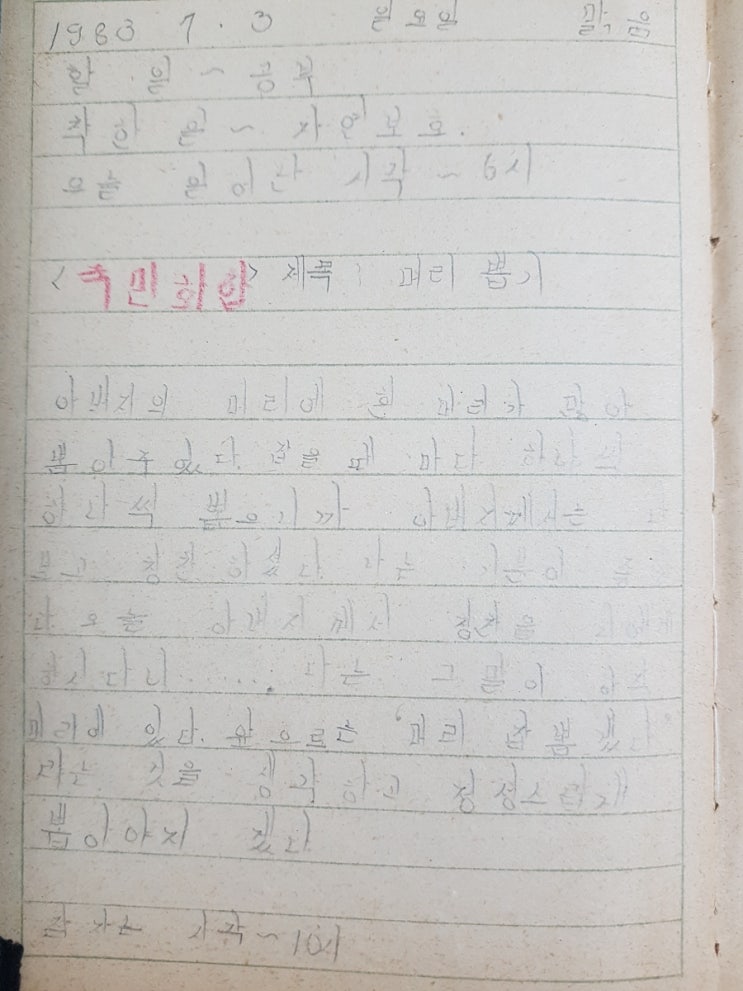 1983 7. 3 일요일 맑음
한 일 ~ 공부
착한 일 ~ 자연보호.
오늘 일어난 시각 ~ 6시
< 주민회의 > 제목 : 머리 뽑기
아버지의 머리에 흰 머리가 많아
뽑아주었다. 잡을 때 마다 하나씩
하나씩 뽑으니까 아버지께서는
보고 칭찬하셨다 나는 기분이
다 오늘 아버지께서 칭찬을
하시다니..... 나는 그 말이 아직
머리에 있다. 앞으로는 '머리 잘 뽑겠다'
라는 것을 생각하고 정성스럽게
뽑아야지 겠다
잠자는 시각 ~ 10시